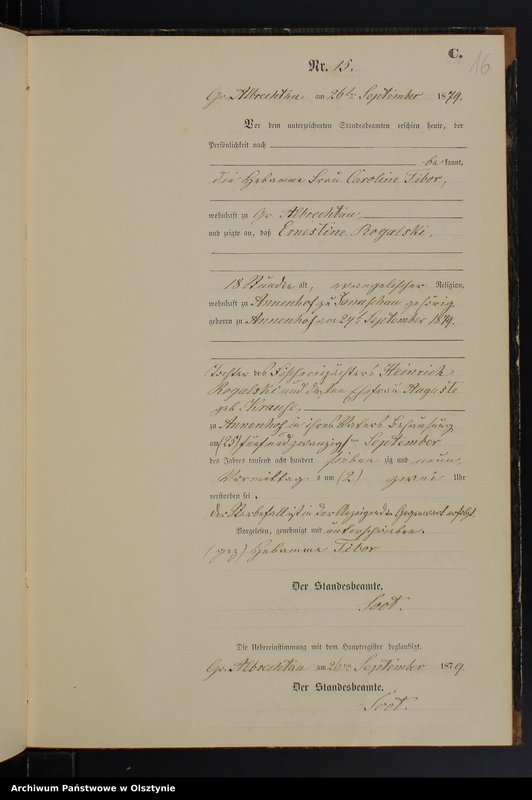 C.
16
Nr. 15.
Gr. Albrechtau am 26ten September 1879.
Vor dem unterzeichneten Standesbeamten erschien heute, der
Persönlichkeit nach
bekannt,
die Hebamme Frau Caroline Tibor,
wohnhaft zu Gr. Albrechtau,
und zeigte an, daß Ernestine Rogalski,
18 Stunden alt, evangelischer Religion,
wohnhaft zu Annenhof zu Januschau gehörig
geboren zu Annenhof am 24t September 1879.
Tochter des Fischereipächters Heinrich
Rogalski und dessen Ehefrau Auguste
geb. Krause,
zu Annenhof in ihres Vaters Behausung
am (25) fünfundzwanzigsten September
des Jahres tausend acht hundert siebenzig und neun,
Vormittag s um (2) zwei Uhr
verstorben sei.
Der Sterbefall ist in der Anzeigenden Gegenwart erfolgt.
Vorgelesen, genehmigt und unterschrieben.
(gez) Hebamme Tibor
Der Standesbeamte.
Die Uebereinstimmung mit dem Hauptregister beglaubigt.
Gr. Albrechtau am 26ten September 1879.
Der Standesbeamte.
Archiwum Państwowe w Olsztynie